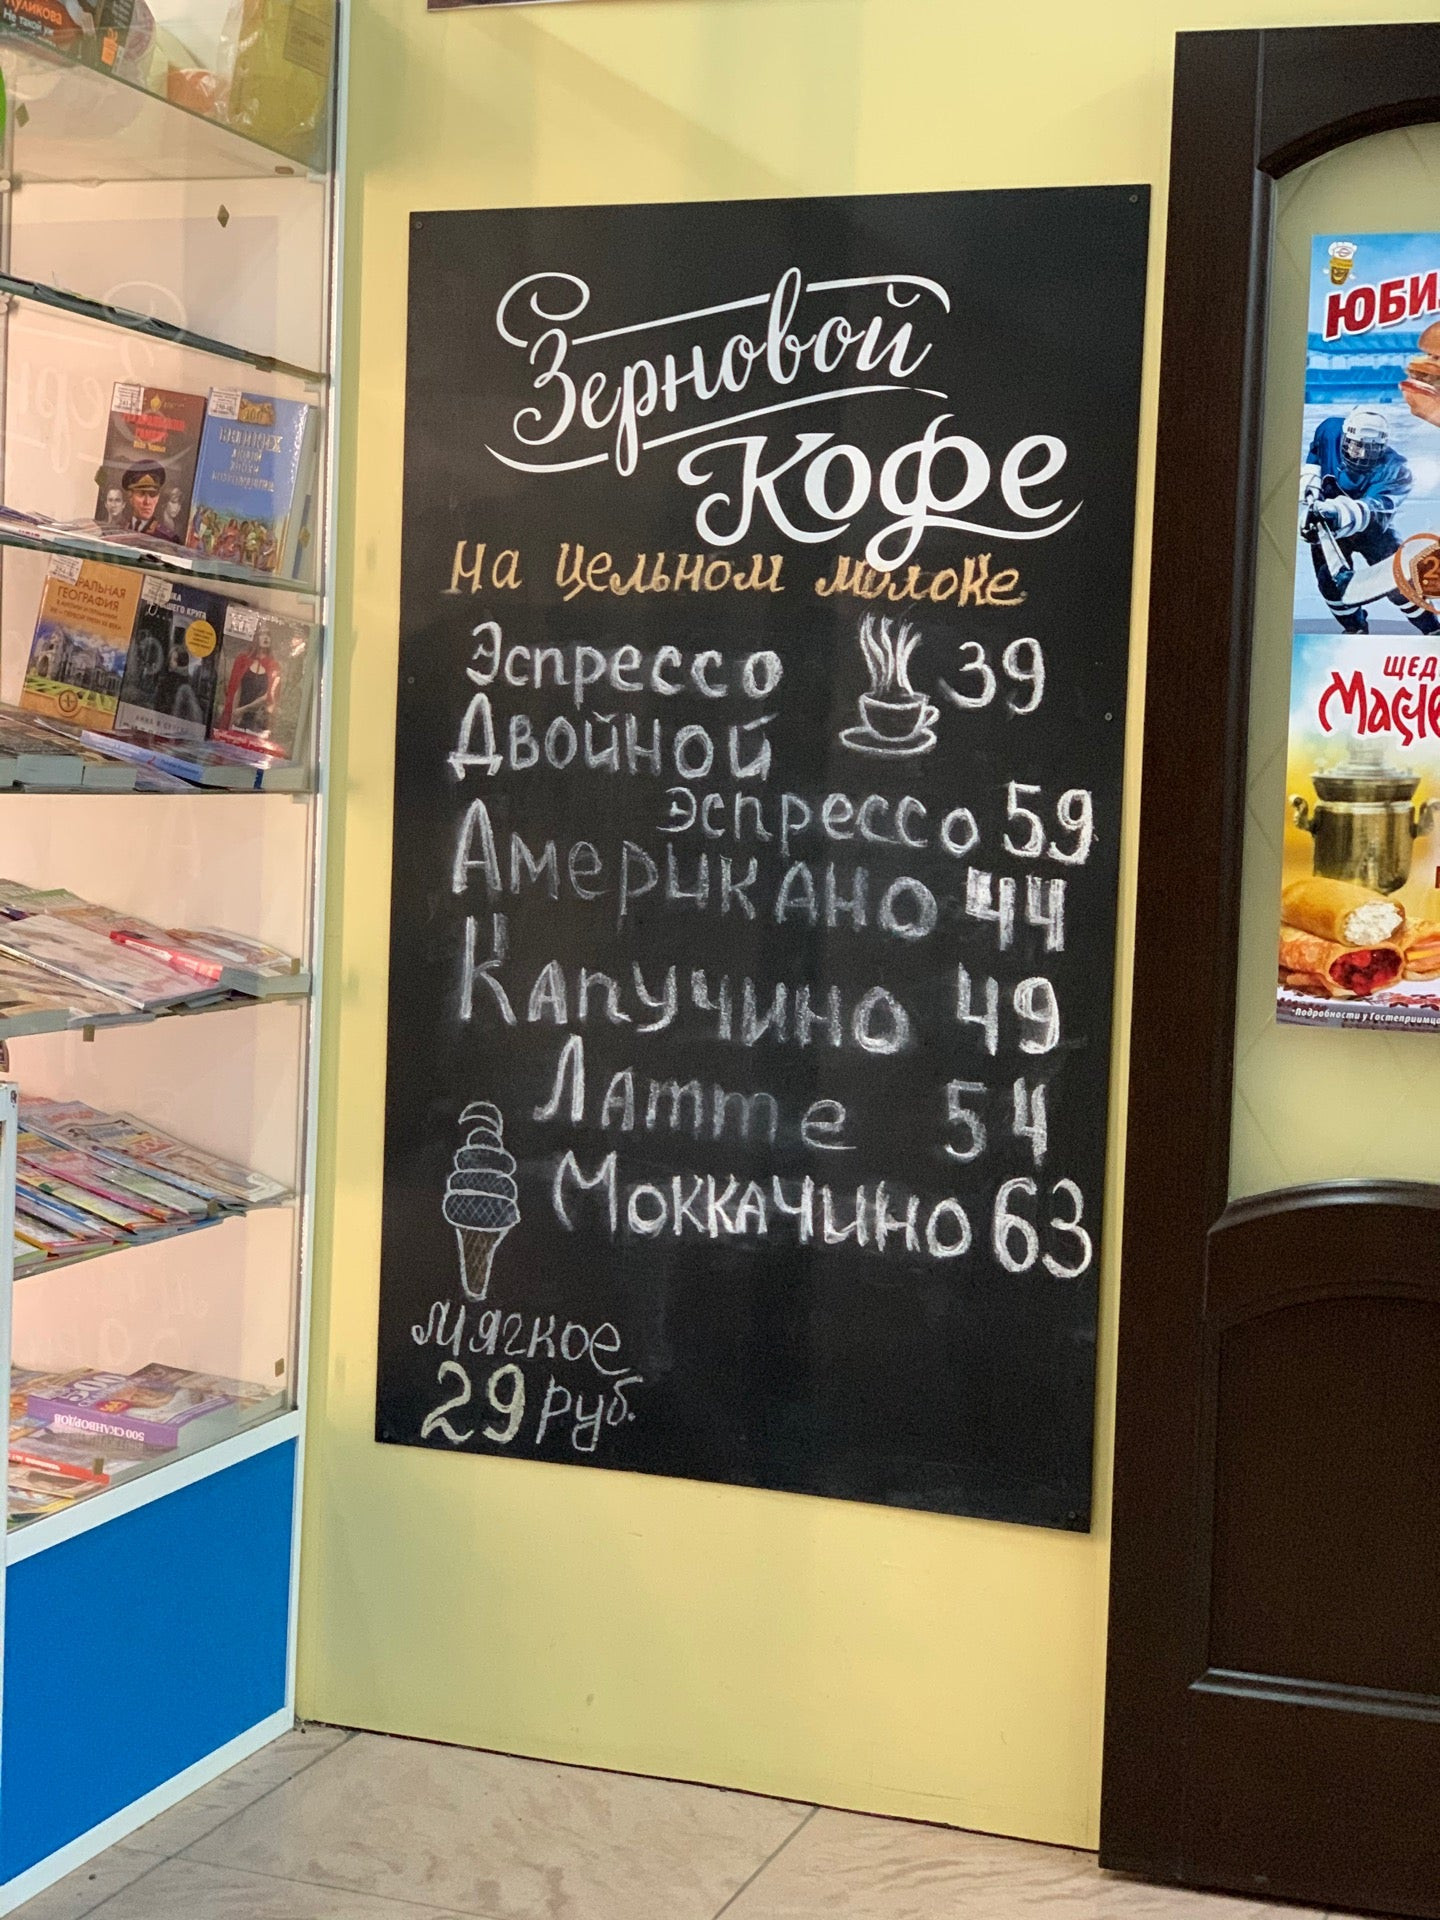 Зерновой
Кофе
На цельном молоке
Эспрессо 39
Двойной
Эспрессо 59
Американо 44
Капучино 49
Латте 54
Моккачино 63
мягкое
29 руб.
Куликова
Не такой уж
ГЕОГРАФИЯ
500 СКАНВОРДОВ
ЮБИ
ЩЕД
Масле
*Подробности у Гостеприимц